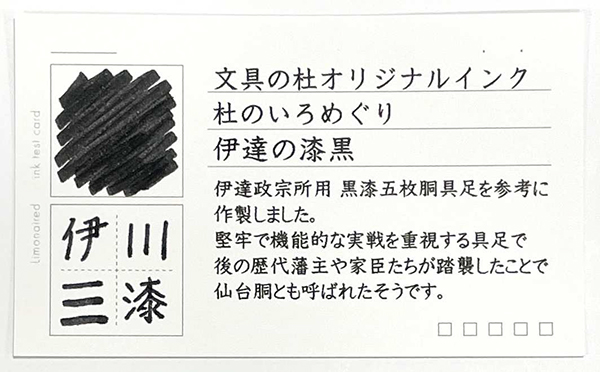 文具の杜オリジナルインク
杜のいろめぐり
伊達の漆黒
伊達政宗所用 黒漆五枚胴具足を参考に
作製しました。
堅牢で機能的な実戦を重視する具足で
後の歴代藩主や家臣たちが踏襲したことで
仙台胴とも呼ばれたそうです。
Limonaired ink test card
伊 川
三 漆